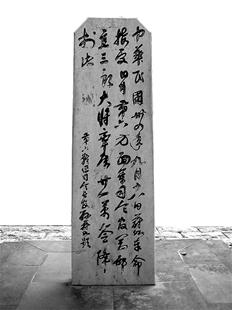 中華民國卅四年九月十八日蔚如奉命
接受日本第六方面軍司令官岡部
直三郎大將率屬廿一萬簽降
於此
第六戰區司令長官孫蔚如題